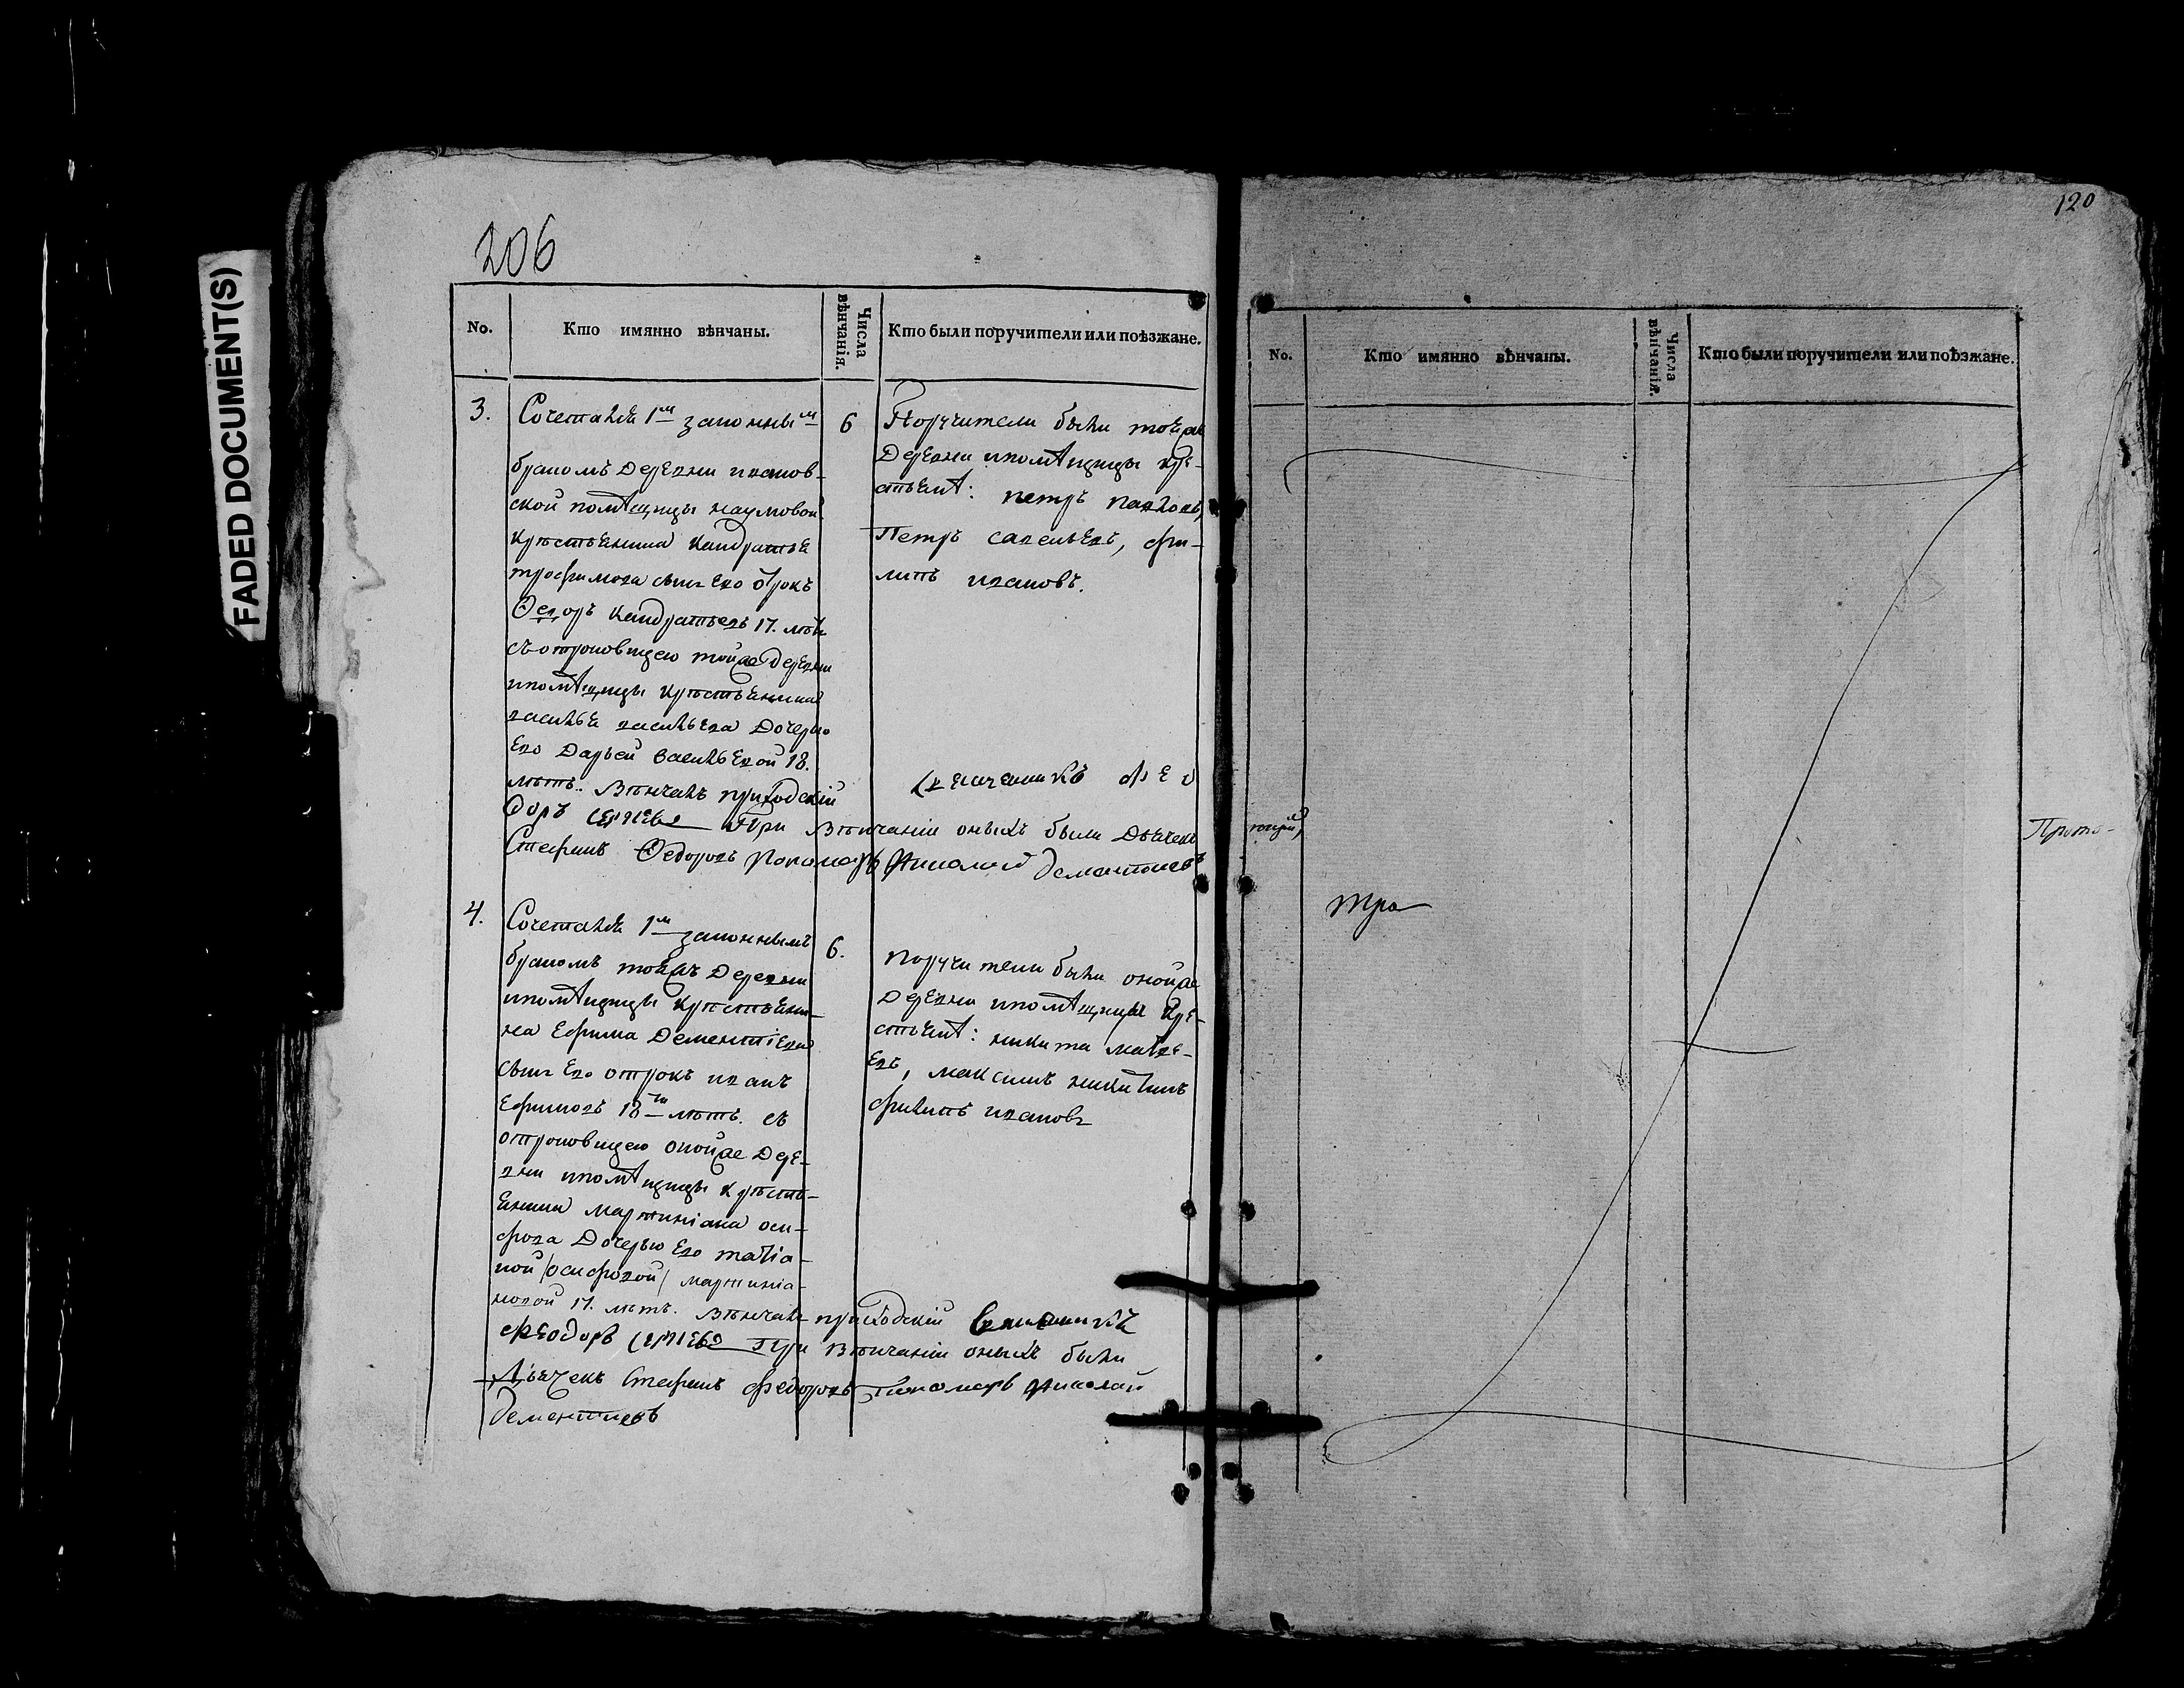 FADED DOCUMENT(S)
206
No.
Кто имянно вѣнчаны.
Числа вѣнчанія.
Кто были поручители или поѣзжане.
3.
Сочетался 1м законным
бракомъ деревни иванов-
ской помѣщицы наумовой
крестьянина Кандратья
трофимова сынъ его отрокъ
Ѳедоръ Кандратьевъ 17. лѣтъ
съ отроковицею тойже деревни
ипомѣщицы крестьянина
василья васильева дочерью
его Дарьей васильевой 18.
лѣтъ. Вѣнчалъ приходскій
6
Поручители были тойже
деревни ипомѣщицы кре-
стьянѣ: петръ павловъ,
Петръ савельевъ, фи-
липъ ивановъ.
священникъ фео
доръ сергіевъ При вѣнчаніи оныхъ были дьячекъ
Стефанъ Ѳедоровъ Пономарь Николай дементиевъ
4.
Сочетался 1м законнымъ
бракомъ тойжъ деревни
ипомѣщицы крестьяни-
на Ефима Дементіева
сынъ его отрокъ иванъ
Ефимовъ 18ти лѣтъ. съ
отроковицею онойже дере-
вни ипомѣщицы кресть-
янина мартиніана оси-
фова дочерью его татіа-
ной /осифовой/ мартиніа-
новой 17. лѣтъ. вѣнчалъ приходскій священникъ
феодоръ сергіевъ При вѣнчаніи оныхъ были
Дьячекъ Стефанъ федоровъ Пономарь Николай
дементиевъ
6.
поручители были онойже
деревни ипомѣщицы кре-
стьянѣ: никита матве-
евъ, максимъ никитинъ
филипъ ивановъ
120
No.
Кто имянно вѣнчаны.
Числа вѣнчанія.
Кто были поручители или поѣзжане.
Прото-
тра